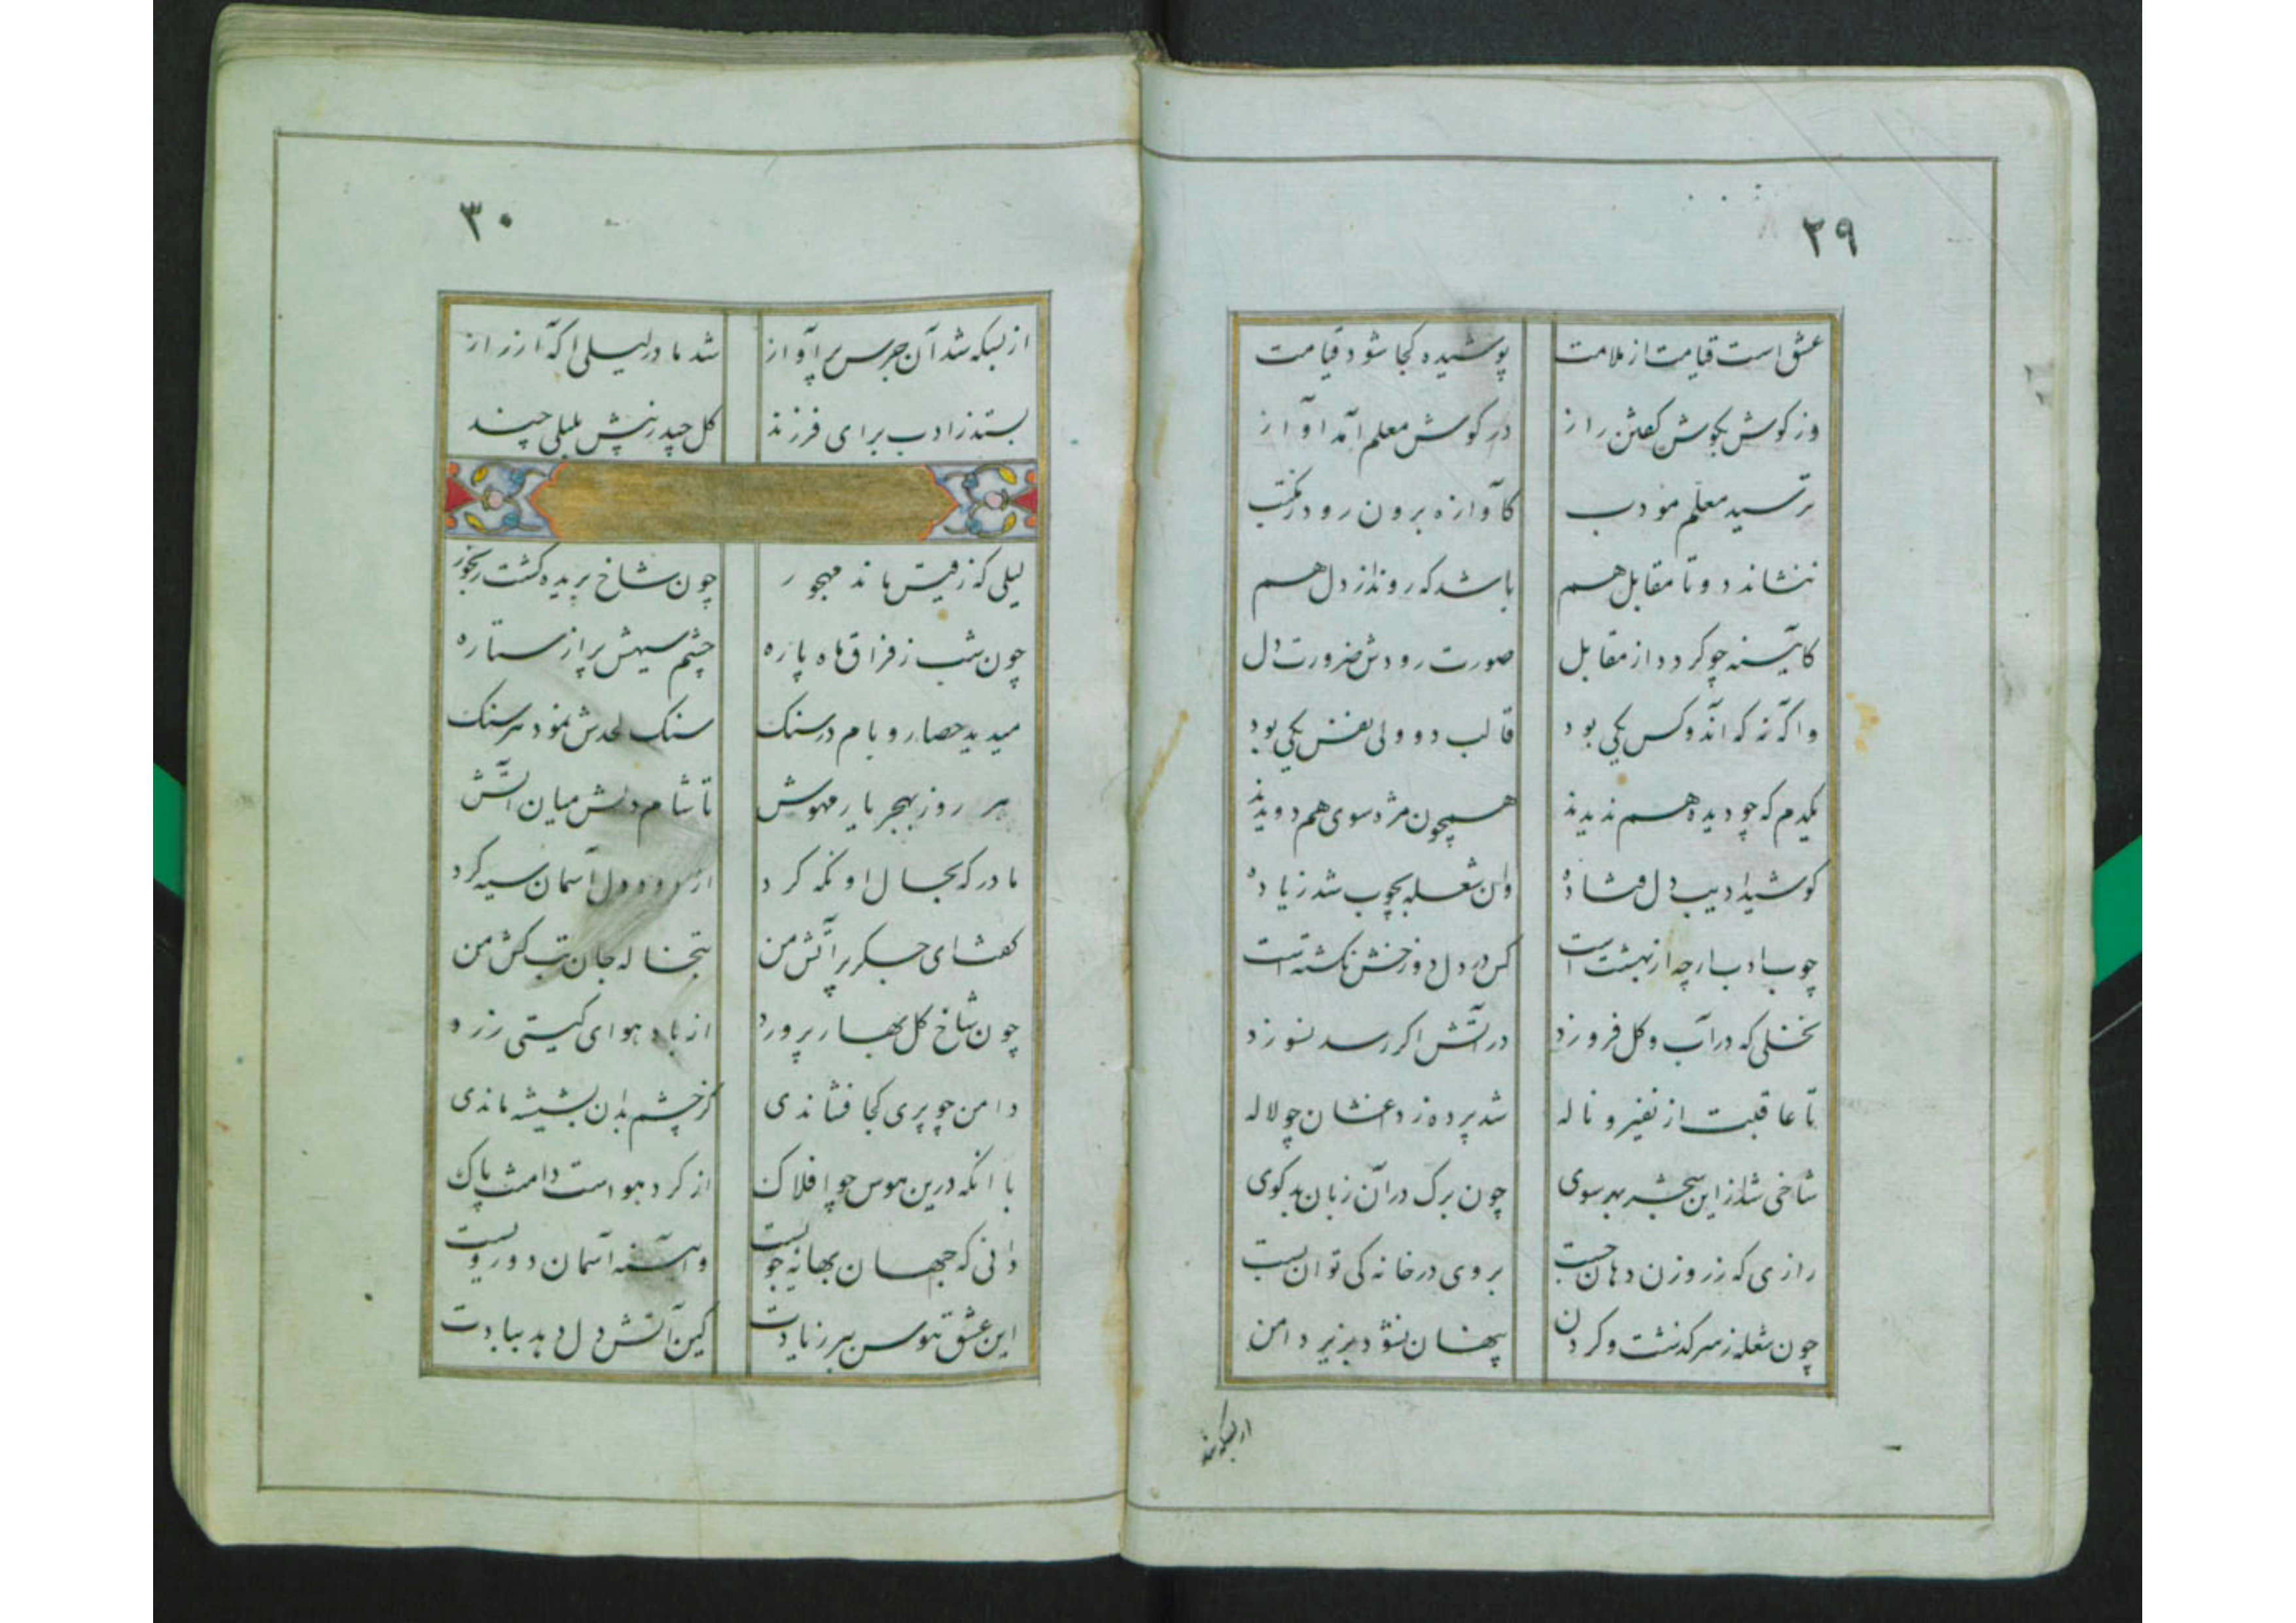 ٢٩
عشق است قیامت از ملامت پوشیده کجا شود قیامت
وز کوش بکوش کفتن راز در کوش معلم آمد آواز
ترسید معلم مودب کآوازه برون رود ز مکتب
ننشاند دو تا مقابل هم باشد که روند از دل هم
کآیینه چو کردد از مقابل صورت رودش ضرورت از دل
واکه نه که آن دو کس یکی بود قالب دو ولی نفس یکی بود
یکدم که چو دیده هم ندیدند همچون مژه سوی هم دویدند
کوشید ادیب دل فتاده وان شعله بچوب شد زیاده
چوب ادب ارچه از بهشت است کس در دل دوزخش نکشته است
نخلی که در آب و کل فروزد در آتش اکر رسد نسوزد
تا عاقبت از نفیر و ناله شد پرده ز داغشان چو لاله
شاخی شد از این شجر بهر سوی چون برک در آن زبان بدکوی
رازی که ز روزن دهان جست بر وی در خانه کی توان بست
چون شعله ز سر کذشت و کردن پنهان نشود بزیر دامن
از بسکه شد
٣٠
از بسکه شد آن جرس پر آواز شد مادر لیلی آکه از راز
بستند ز ادب برای فرزند کل چید ز نیش بلبلی چند
لیلی که ز قیس ماند مهجور چون شاخ بریده کشت رنجور
چون شب ز فراق ماه پاره چشم سیهش پر از ستاره
میدید حصار و بام در سنک سنک لحدش نمود هر سنک
هر روز بهجر یار مهوش تا شام دلش میان آتش
مادر که بحال او نکه کرد از دود دل آسمان سیه کرد
کفت ای جکر پر آتش من تبخاله جان تب کش من
چون شاخ کل بهار پرورد از باد هوای کیتی زرد
دامن چو پری کجا فشاندی کز چشم بدان بشیشه ماندی
با آنکه درین هوس چو افلاک از کرد هواست دامنت پاک
دانی که جهان بهانه جویست وآیینه آسمان دورویست
این عشق و هوس ببر ز یادت کین آتش دل دهد ببادت